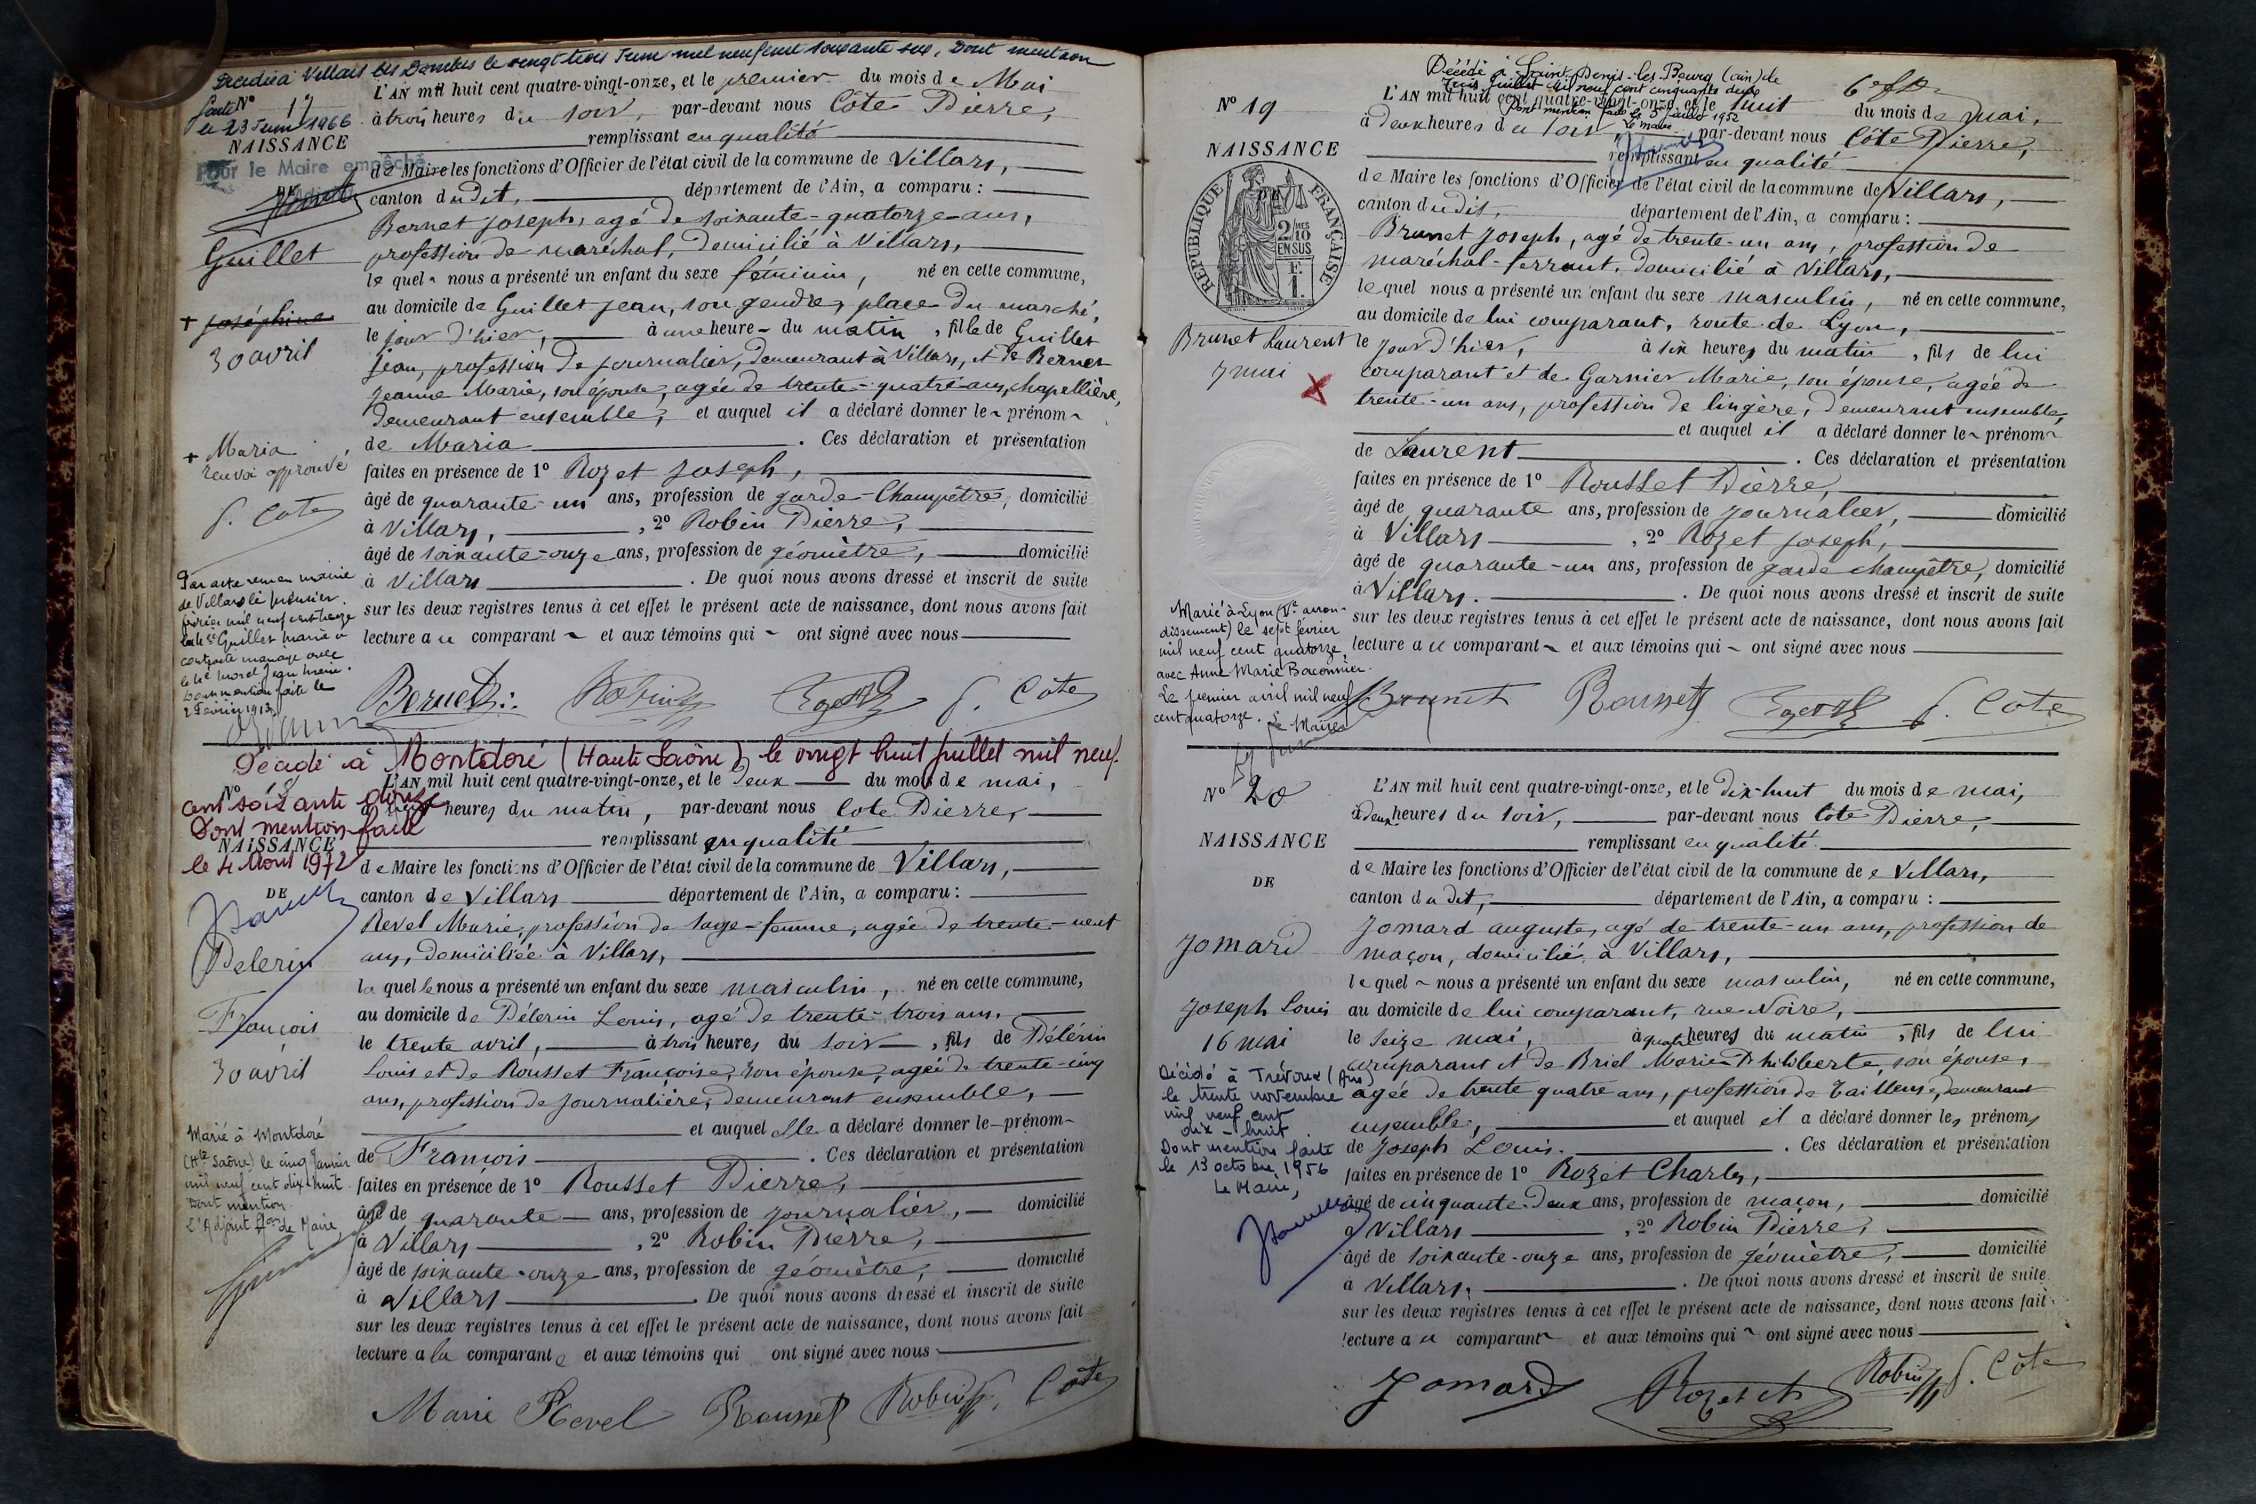 Décédée à Villars les Dombes le vingt trois Juin mil neuf cent soixante six. Dont mention
faite
le 23 Juin 1966
Nº 17
NAISSANCE
Pour le Maire empêché
DE
Guillet
+ Joséphine
30 avril
+ Maria
renvoi approuvé
P. Côte
Par acte reçu en mairie
de Villars le premier
février mil neuf cent treize
la dite Guillet Maria a
contracté mariage avec
le né Morel Jean Marie.
Dont mention faite le
2 Février 1913
L'AN mil huit cent quatre-vingt-onze, et le premier du mois de Mai
à trois heures du soir, par-devant nous Côte Pierre,
remplissant en qualité
de Maire les fonctions d'Officier de l'état civil de la commune de Villars,
canton dudit, département de l'Ain, a comparu :
Bernet Joseph, agé de soixante-quatorze ans,
profession de maréchal, domicilié à Villars,
lequel nous a présenté un enfant du sexe féminin, né en cette commune,
au domicile de Guillet Jean, son gendre, place du marché,
le jour d'hier, à une heure du matin, fille de Guillet
Jean, profession de journalier, demeurant à Villars, et de Bernet
Jeanne Marie, son épouse, agée de trente-quatre ans, chapellière,
demeurant ensemble, et auquel il a déclaré donner le prénom
de Maria . Ces déclaration et présentation
faites en présence de 1º Rozet Joseph,
âgé de quarante-un ans, profession de garde-Champêtre, domicilié
à Villars, , 2º Robin Pierre,
âgé de soixante-onze ans, profession de géomètre, domicilié
à Villars . De quoi nous avons dressé et inscrit de suite
sur les deux registres tenus à cet effet le présent acte de naissance, dont nous avons fait
lecture au comparant et aux témoins qui ont signé avec nous
Bernet Robin Rozet P. Côte
Décédé à Montdoré (Haute Saône) le vingt huit juillet mil neuf
cent soixante douze
Dont mention faite
le 4 Août 1972
Nº 18
NAISSANCE
DE
Pelerin
François
30 avril
Marié à Montdoré
(Hte Saône) le cinq Janvier
mil neuf cent dix huit
Dont mention
L'Adjoint ffons de Maire
L'AN mil huit cent quatre-vingt-onze, et le deux du mois de mai,
à neuf heures du matin, par-devant nous Cote Pierre,
remplissant en qualité
de Maire les fonctions d'Officier de l'état civil de la commune de Villars,
canton de Villars département de l'Ain, a comparu :
Revel Marie, profession de sage-femme, agée de trente-neuf
ans, domiciliée à Villars,
laquelle nous a présenté un enfant du sexe masculin, né en cette commune,
au domicile de Pélerin Louis, agé de trente-trois ans,
le trente avril, à trois heures du soir, fils de Pélérin
Louis et de Rousset Françoise, son épouse, agée de trente-cinq
ans, profession de journalière, demeurant ensemble,
et auquel elle a déclaré donner le prénom
de François . Ces déclaration et présentation
faites en présence de 1º Rousset Pierre,
âgé de quarante ans, profession de journalier, domicilié
à Villars , 2º Robin Pierre,
âgé de soixante-onze ans, profession de géomètre, domicilié
à Villars . De quoi nous avons dressé et inscrit de suite
sur les deux registres tenus à cet effet le présent acte de naissance, dont nous avons fait
lecture a la comparante et aux témoins qui ont signé avec nous
Marie Revel Rousset Robin P. Côte
Décédé à Saint Denis-les-Bourg (Ain) le
trois Juillet mil neuf cent cinquante deux
Dont mention faite le 5 Juillet 1952
Le maire
Nº 19
NAISSANCE
DE
RÉPUBLIQUE FRANÇAISE
2/10 MES EN SUS
Brunet Laurent
7 mai
X
Marié à Lyon (Ve arron-
dissement) le sept février
mil neuf cent quatorze
avec Anne Marie Baconnier.
Le premier avril mil neuf
cent quatorze. Le Maire
L'AN mil huit cent quatre-vingt-onze, et le huit du mois de mai,
à deux heures du soir par-devant nous Côte Pierre,
remplissant en qualité
de Maire les fonctions d'Officier de l'état civil de la commune de Villars,
canton dudit, département de l'Ain, a comparu :
Brunet Joseph, agé de trente-un ans, profession de
maréchal-ferrant, domicilié à Villars,
lequel nous a présenté un enfant du sexe masculin, né en cette commune,
au domicile de lui comparant, route de Lyon,
le jour d'hier, à six heures du matin, fils de lui
comparant et de Garnier Marie, son épouse, agée de
trente-un ans, profession de lingère, demeurant ensemble,
et auquel il a déclaré donner le prénom
de Laurent . Ces déclaration et présentation
faites en présence de 1º Rousset Pierre,
âgé de quarante ans, profession de journalier, domicilié
à Villars , 2º Rozet Joseph,
âgé de quarante-un ans, profession de garde champêtre, domicilié
à Villars. . De quoi nous avons dressé et inscrit de suite
sur les deux registres tenus à cet effet le présent acte de naissance, dont nous avons fait
lecture au comparant et aux témoins qui ont signé avec nous
Brunet Rousset Rozet P. Côte
Nº 20
NAISSANCE
DE
Jomard
Joseph Louis
16 mai
Décédé à Trévoux (Ain)
le trente novembre
mil neuf cent
dix-huit
Dont mention faite
le 13 octobre 1956
Le Maire,
L'AN mil huit cent quatre-vingt-onze, et le dix-huit du mois de mai,
à deux heures du soir, par-devant nous Cote Pierre,
remplissant en qualité
de Maire les fonctions d'Officier de l'état civil de la commune de Villars,
canton dudit, département de l'Ain, a comparu :
Jomard auguste, agé de trente-un ans, profession de
maçon, domicilié à Villars,
lequel nous a présenté un enfant du sexe masculin, né en cette commune,
au domicile de lui comparant, rue Noire,
le seize mai, à quatre heures du matin, fils de lui
comparant et de Briel Marie Philiberte, son épouse,
agée de trente quatre ans, profession de tailleuse, demeurant
ensemble, et auquel il a déclaré donner les prénoms
de Joseph Louis. . Ces déclaration et présentation
faites en présence de 1º Rozet Charles,
âgé de cinquante-deux ans, profession de maçon, domicilié
à Villars , 2º Robin Pierre,
âgé de soixante-onze ans, profession de géomètre, domicilié
à Villars, . De quoi nous avons dressé et inscrit de suite
sur les deux registres tenus à cet effet le présent acte de naissance, dont nous avons fait
lecture au comparant et aux témoins qui ont signé avec nous
Jomard Rozet ch Robin P. Côte